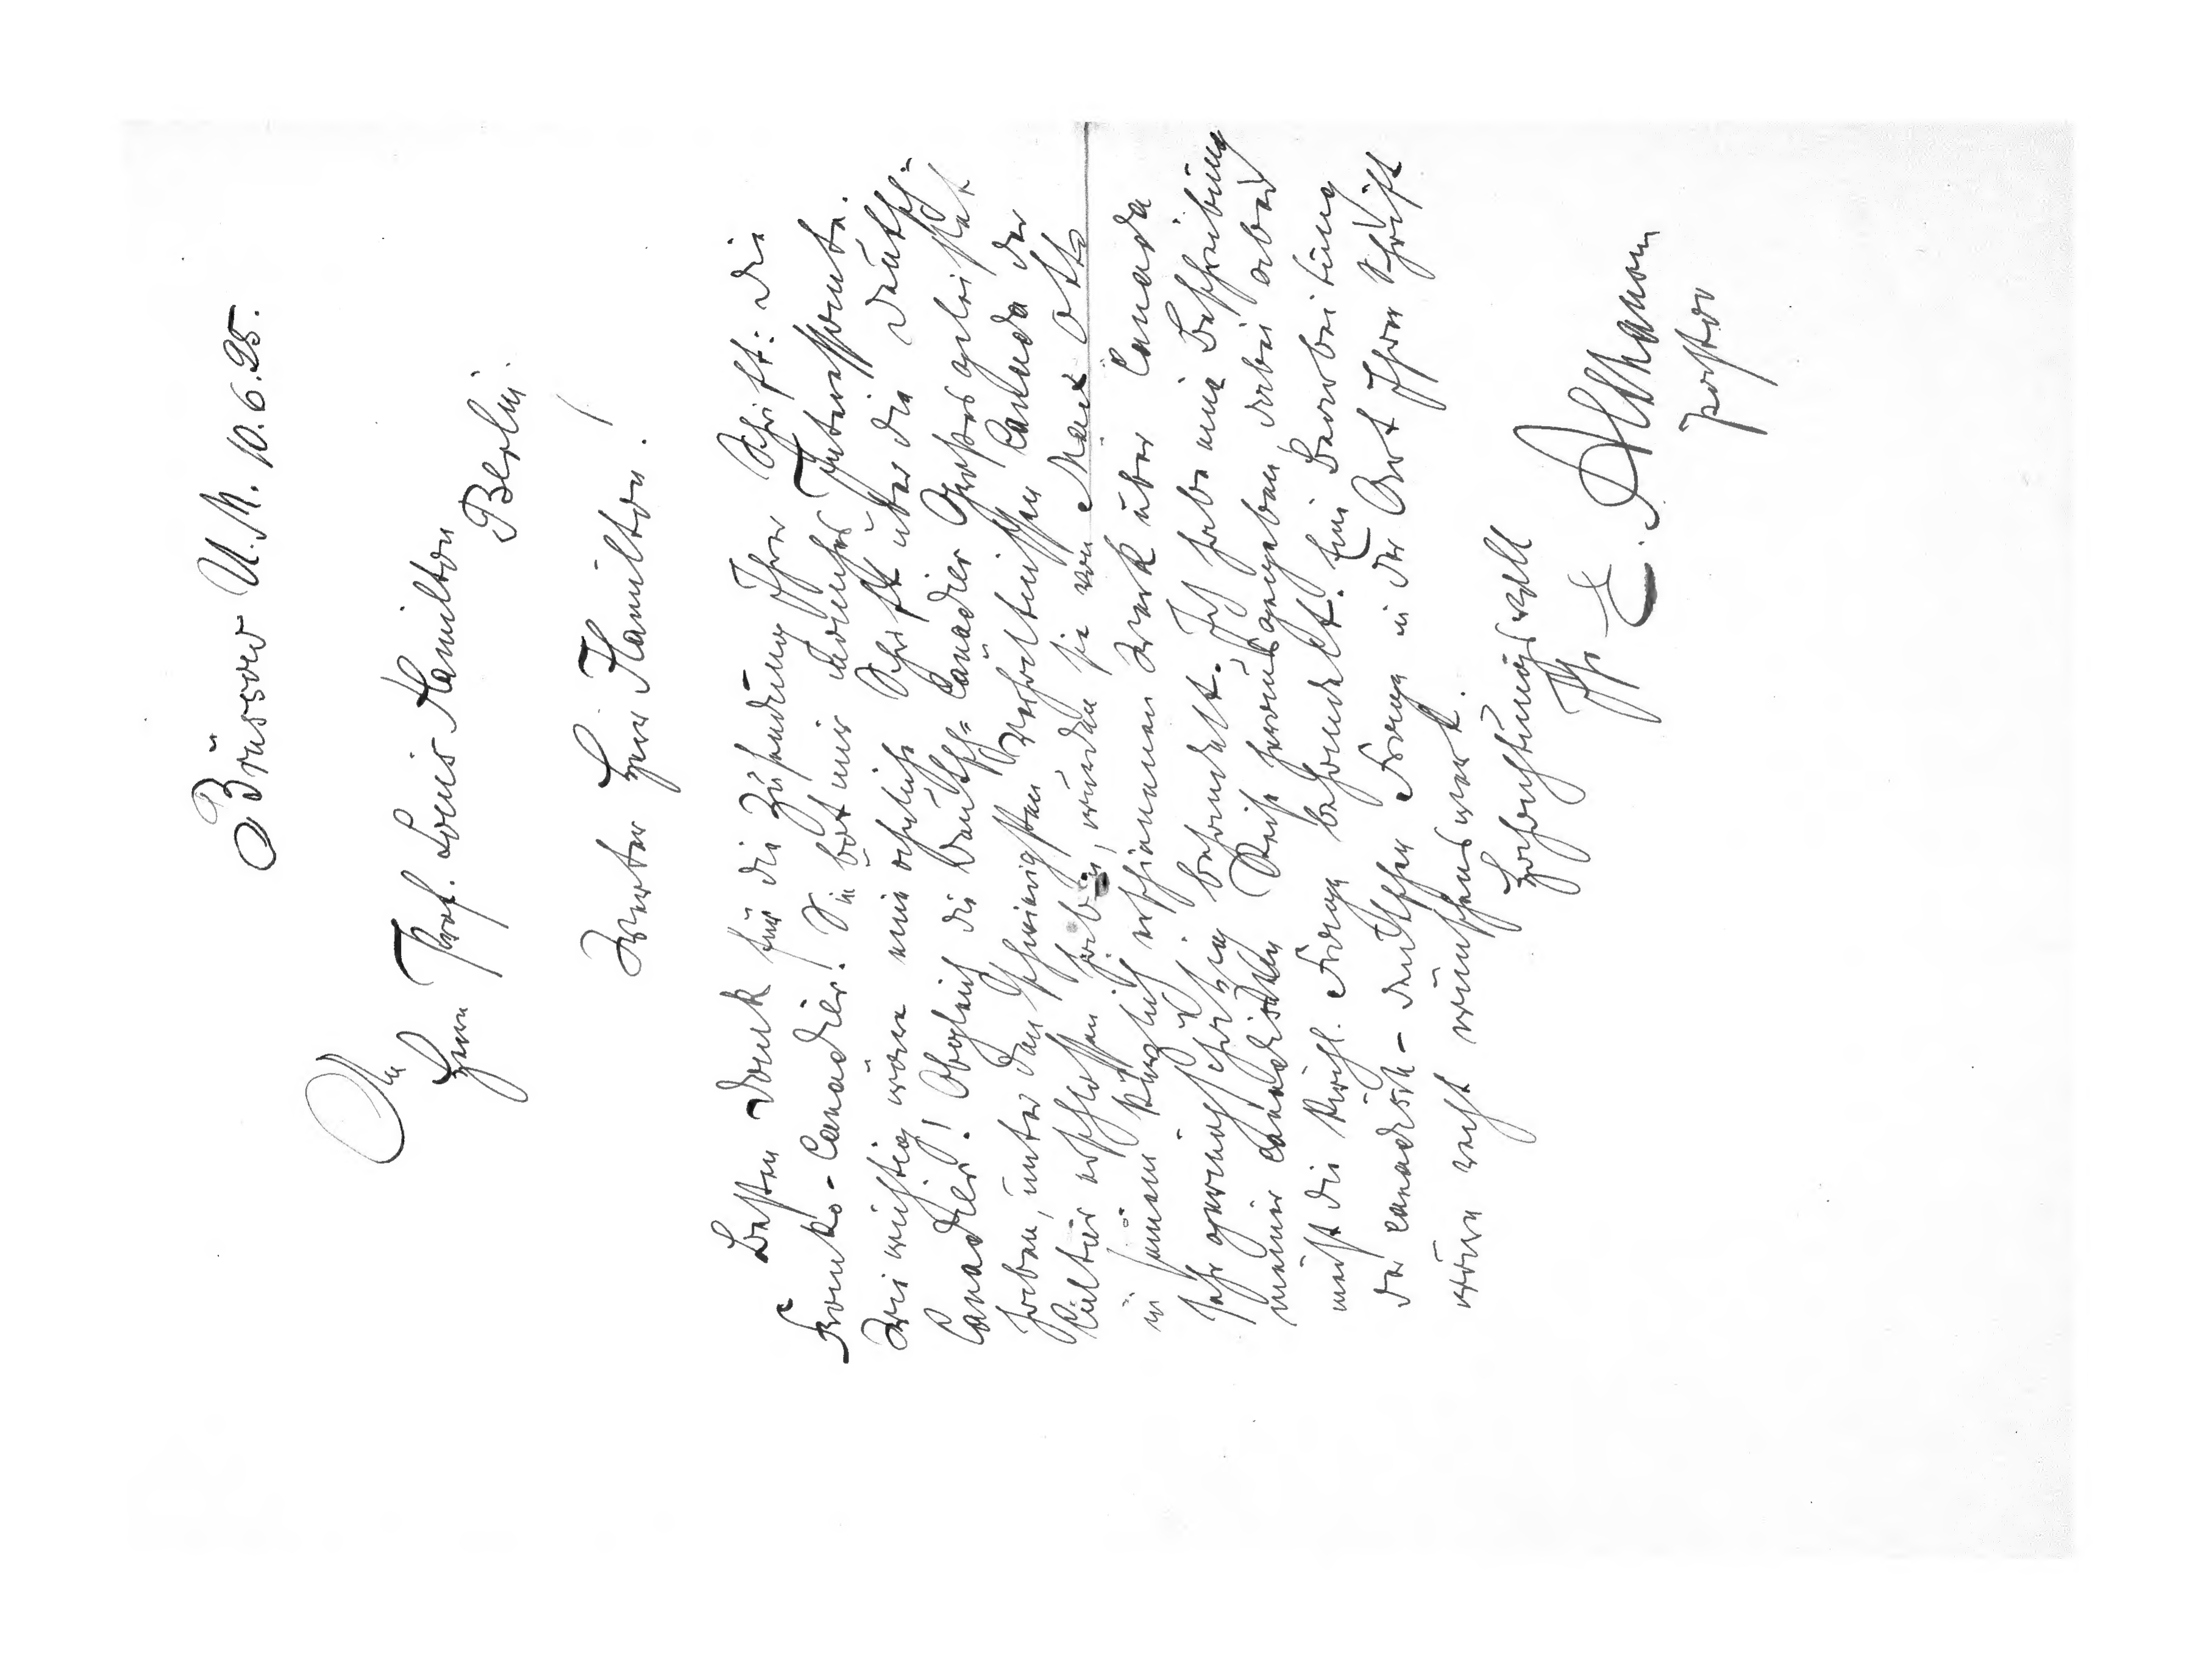 Brüssow U.M. 10.6.25.
An
Herrn Prof. Louis Hamilton
Berlin.
Werter Herr Hamilton!
Besten Dank für die Zusendung Ihrer Schrift: die
Franko-Canadier! Sie bot mir manches Interessante.
Wie wichtig wäre eine ähnliche Schrift über die Deutsch-
Canadier! Obgleich die Deutsch-Canadier Großes geleistet
haben, unter den schwierigsten Verhältnissen Canada der
Cultur erschlossen haben, werden sie von Max Otto
in seinem kürzlich erschienenen Werk über Canada
sehr geringschätzig behandelt. Ich habe eine Beschreibung
meiner canadischen Reise herausgegeben, dabei aber
meist die kirchl. Frage behandelt. Eine Bearbeitung
der canadisch-deutschen Frage in der Art Ihrer Schrift
wäre recht wünschenswert.
Hochachtungsvoll
Ihr E. Altmann
Pastor